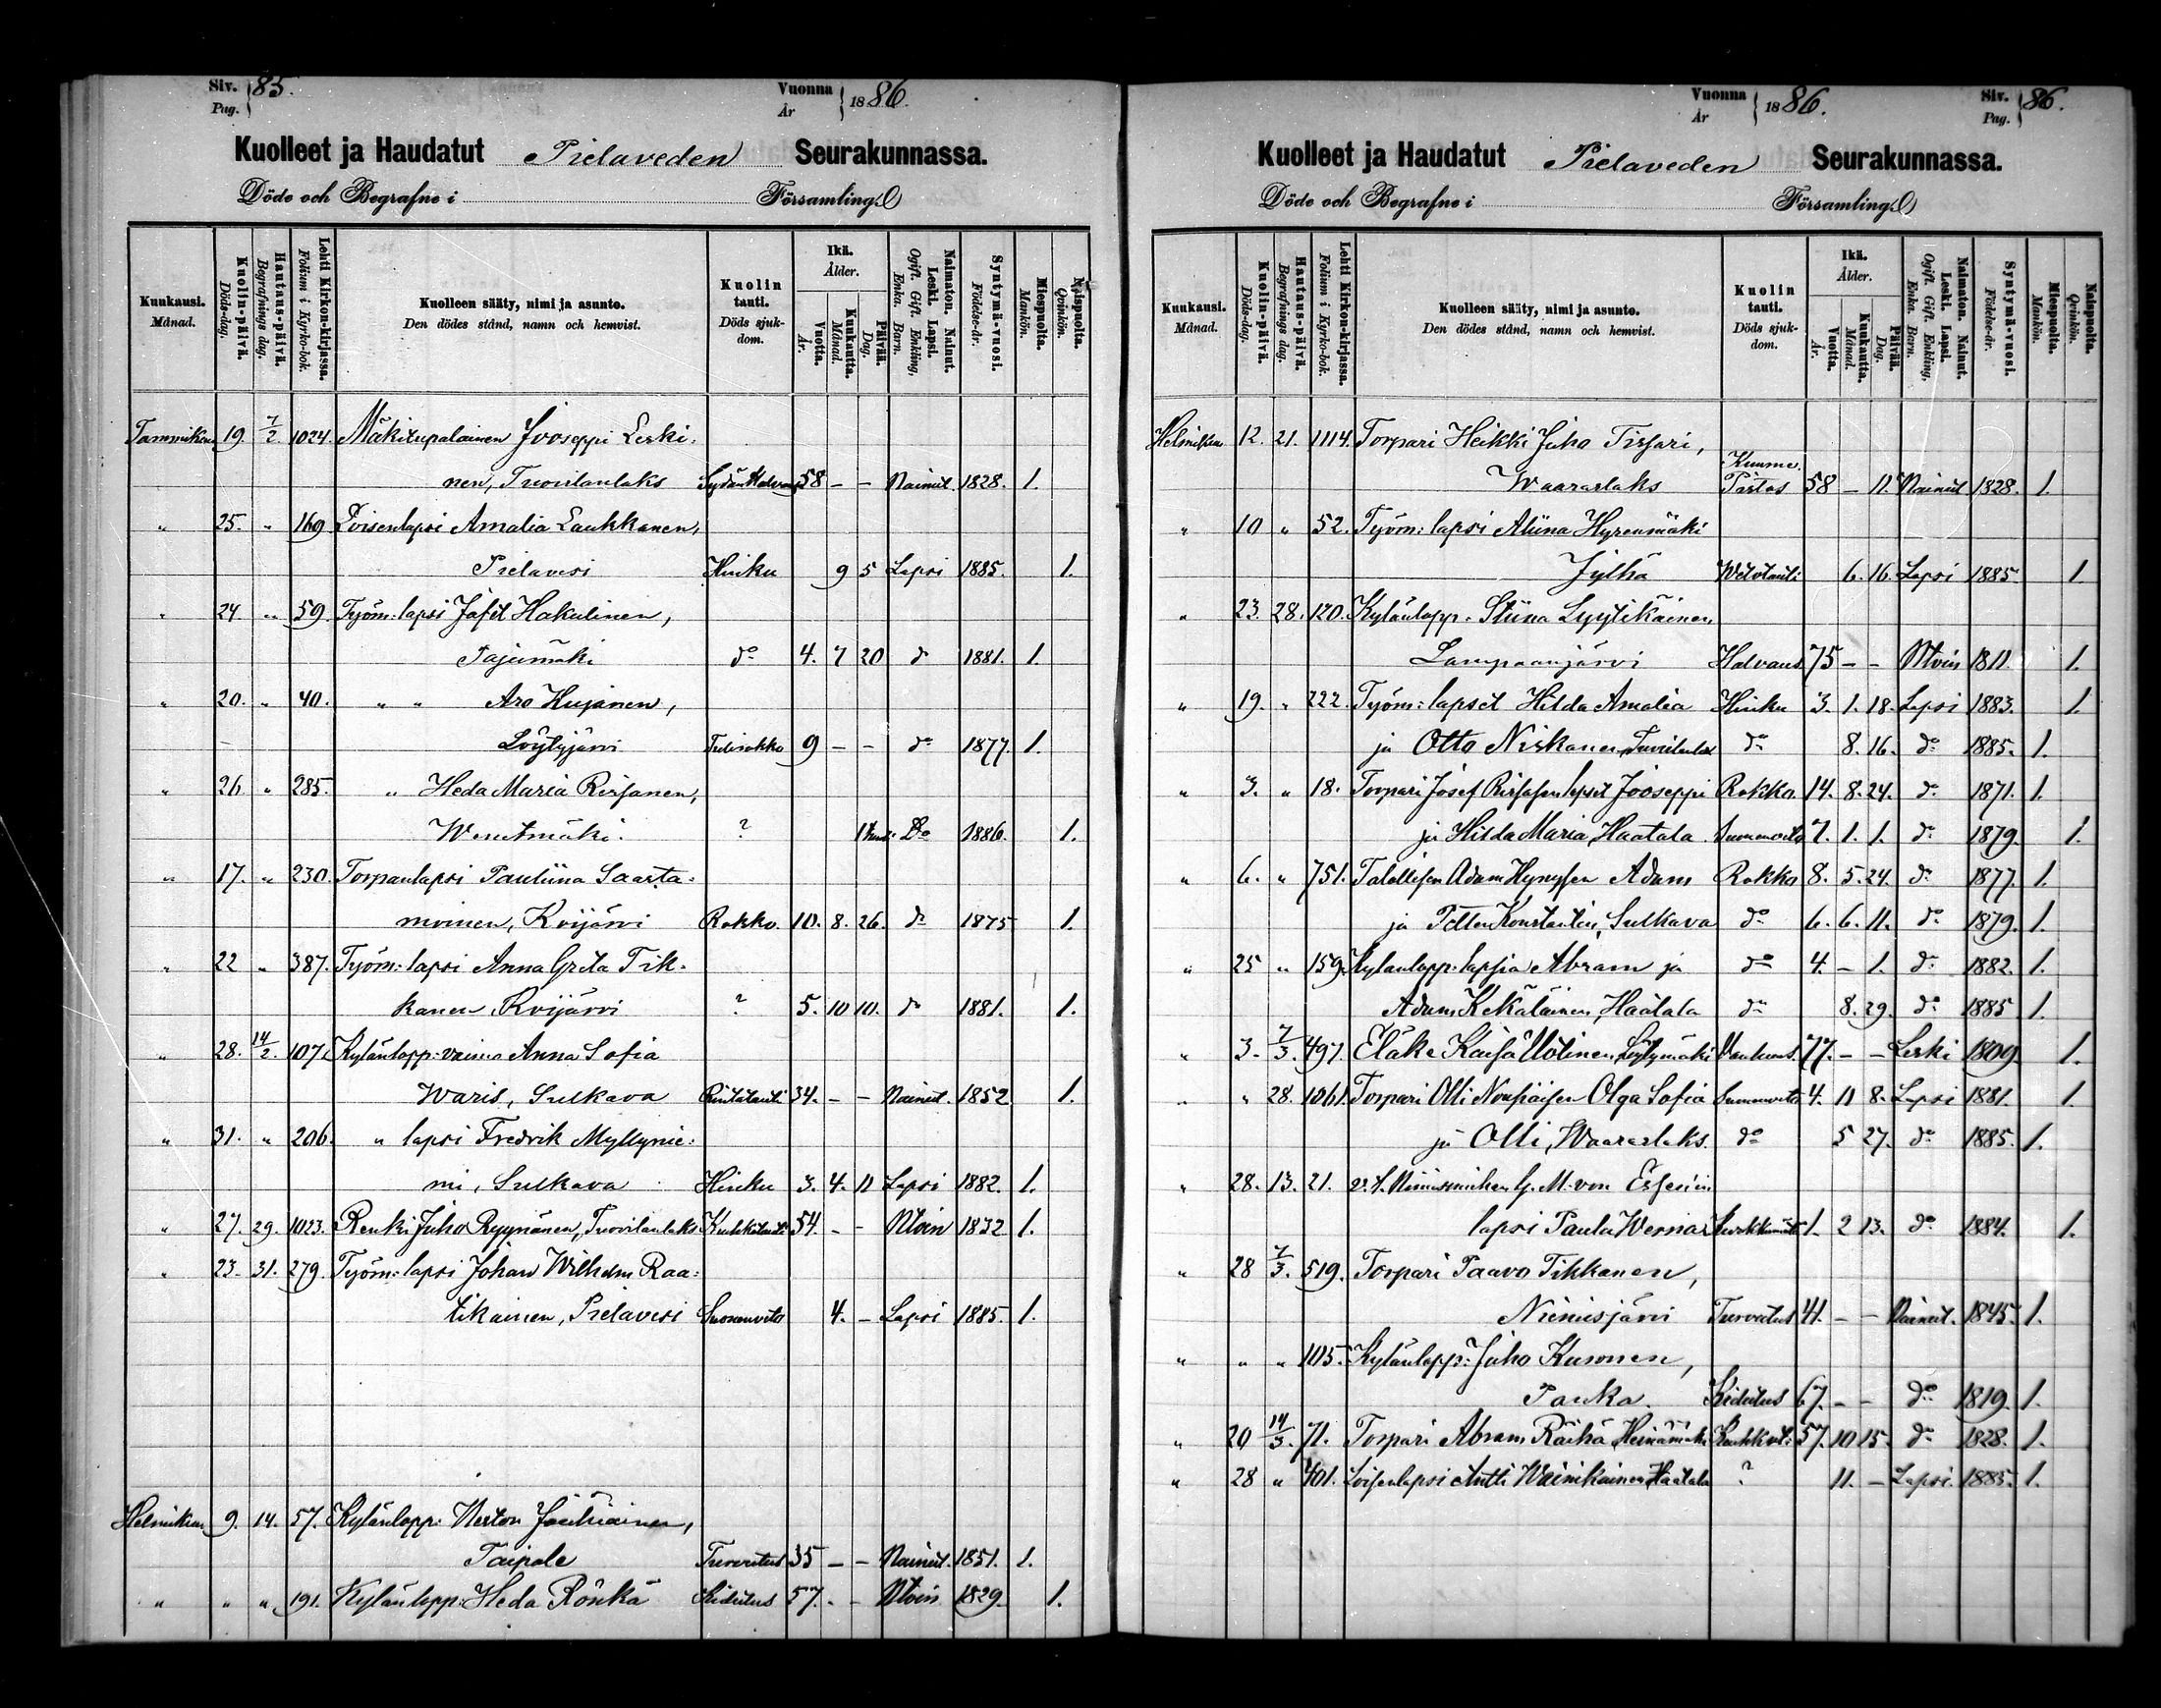 Siv. Pag. 85.
Vuonna År 1886.
Kuolleet ja Haudatut Pielaveden Seurakunnassa.
Döde och Begrafne i Församling.
Kuukausi. Månad.
Kuolin-päivä. Döds-dag.
Hautaus-päivä. Begrafnings dag.
Lehti Kirkon-kirjassa. Folium i Kyrko-bok.
Kuolleen sääty, nimi ja asunto. Den dödes stånd, namn och hemvist.
Kuolin tauti. Döds sjukdom.
Ikä. Ålder.
Vuotta. År.
Kuukautta. Månad.
Päivää. Dag.
Naimaton. Nainut. Leski. Lapsi. Ogift. Gift. Enkling, Enka. Barn.
Syntymä-vuosi. Födelse-år.
Miespuolta. Mankön.
Naispuolta. Qvinkön.
Tammikuu 19. 7/2. 1024. Mäkitupalainen Jooseppi Leski-
nen, Tuovilanlaks 58 - - Nainut. 1828. 1.
" 25. " 169 Loisenlapsi Amalia Laukkanen,
Pielavesi Hinku 9 5 Lapsi 1885. 1.
" 24. " 59. Työm: lapsi Jafet Hakulinen,
Pajumäki do 4. 7 20 do 1881. 1.
" 20. " 40. " " Aro Hujanen,
Löytyjärvi Tulirokko 9 - - do 1877. 1.
" 26. " 285. " Heda Maria Rissanen,
Wenetmäki. ? 1 Do 1886. 1.
" 17. " 230. Torpanlapsi Pauliina Saasta-
moinen, Koijärvi Rokko. 10. 8. 26. do 1875 1.
" 22 " 387. Työm: lapsi Anna Greta Tik-
kanen, Koijärvi ? 5. 10 10. do 1881. 1.
" 28. 14/2. 107. Kylänlopp: vaimo Anna Sofia
Waris, Sulkava Rintatauti 34. - - Nainut. 1852 1.
" 31. " 206. " lapsi Fredrik Myllynie-
mi, Sulkava Hinku 3. 4. 11 Lapsi 1882. 1.
" 27. 29. 1023. Renki Juho Ryynänen, Tuovilanlaks Keuhkotauti 54. - - Ntoin 1832 1.
" 23. 31. 279. Työm: lapsi Johan Wilhelm Raa-
tikainen, Pielavesi Suonenveto 4. - Lapsi 1885. 1.
Helmikuu 9. 14. 57. Kylänlopp: Nestor Jääskäinen,
Taipale Turvotus 35 - - Nainut. 1851. 1.
" " " 191. Kylänlopp: Heda Rönkä Kidutus 57. - - Ntoin 1829. 1.
Vuonna År 1886.
Siv. Pag. 86.
Kuolleet ja Haudatut Pielaveden Seurakunnassa.
Döde och Begrafne i Församling.
Kuukausi. Månad.
Kuolin-päivä. Döds-dag.
Hautaus-päivä. Begrafnings dag.
Lehti Kirkon-kirjassa. Folium i Kyrko-bok.
Kuolleen sääty, nimi ja asunto. Den dödes stånd, namn och hemvist.
Kuolin tauti. Döds sjukdom.
Ikä. Ålder.
Vuotta. År.
Kuukautta. Månad.
Päivää. Dag.
Naimaton. Nainut. Leski. Lapsi. Ogift. Gift. Enkling, Enka. Barn.
Syntymä-vuosi. Födelse-år.
Miespuolta. Mankön.
Naispuolta. Qvinkön.
Helmikuu 12. 21. 1114. Torpari Heikki Juho Tissari,
Waaraslaks Kuume. Pistos 58 - 11. Nainut 1828. 1.
" 10 " 52. Työm: lapsi Aliina Hyvenmäki
Jylhä 6. 16. Lapsi 1885. 1
" 23. 28. 120. Kylänlopp: Stiina Lyytikäinen
Lampaanjärvi Halvaus 75 - - Ntoin 1811. 1.
" 19. " 222. Työm: lapset Hilda Amalia Hinku 3. 1. 18. Lapsi 1883. 1.
ja Otto Niskanen, do 8. 16. do 1885. 1.
" 3. " 18. Torpari Josef Rissasen lapset Jooseppi Rokko 14. 8. 24. do 1871. 1.
ja Hilda Maria, Haatala Suonenveto 7. 1. 1. do 1879. 1.
" 6. " 751. Talollisen Adam Hynysen Adam Rokko 8. 5. 24. do 1877. 1.
ja Petter Konstantin, Sulkava do 6. 6. 11. do 1879. 1.
" 25 " 159. Kylanlopp: lapsia Abram ja do 4. - 1. do 1882. 1.
Adam Kekäläinen, Haatala do 8. 29. do 1885 1.
" 3. 7/3. 497. Eläke Kaisa Utölinen, Löytymäki Vanhuus. 77. - - Leski 1809 1.
" " 28. 1061. Torpari Olli Nousiaisen Olga Sofia Suonenveto 4. 11 8. Lapsi 1881. 1.
ja Olli, Waaraslaks. do 5 27. do 1885. 1.
" 28. 13. 21. v. t. Nimismiehen G. M. von Essenin
lapsi Paula Werna 1. 2 13. do 1884. 1.
" 28 7/3. 519. Torpari Paavo Tikkanen,
Niemisjärvi Turvotus 41. - - Nainut. 1845. 1.
" " " 105. Kylänlopp: Juho Kusonen,
Panka. Kidutus 67. - - do 1819. 1.
" 20 14/3. 71. Torpari Abram Räihä, Heinämäki Keuhkot: 57. 10 15. do 1828. 1.
" 28 " 401. Loisenlapsi Antti Wainikainen, Haatala ? 11. - Lapsi. 1885. 1.